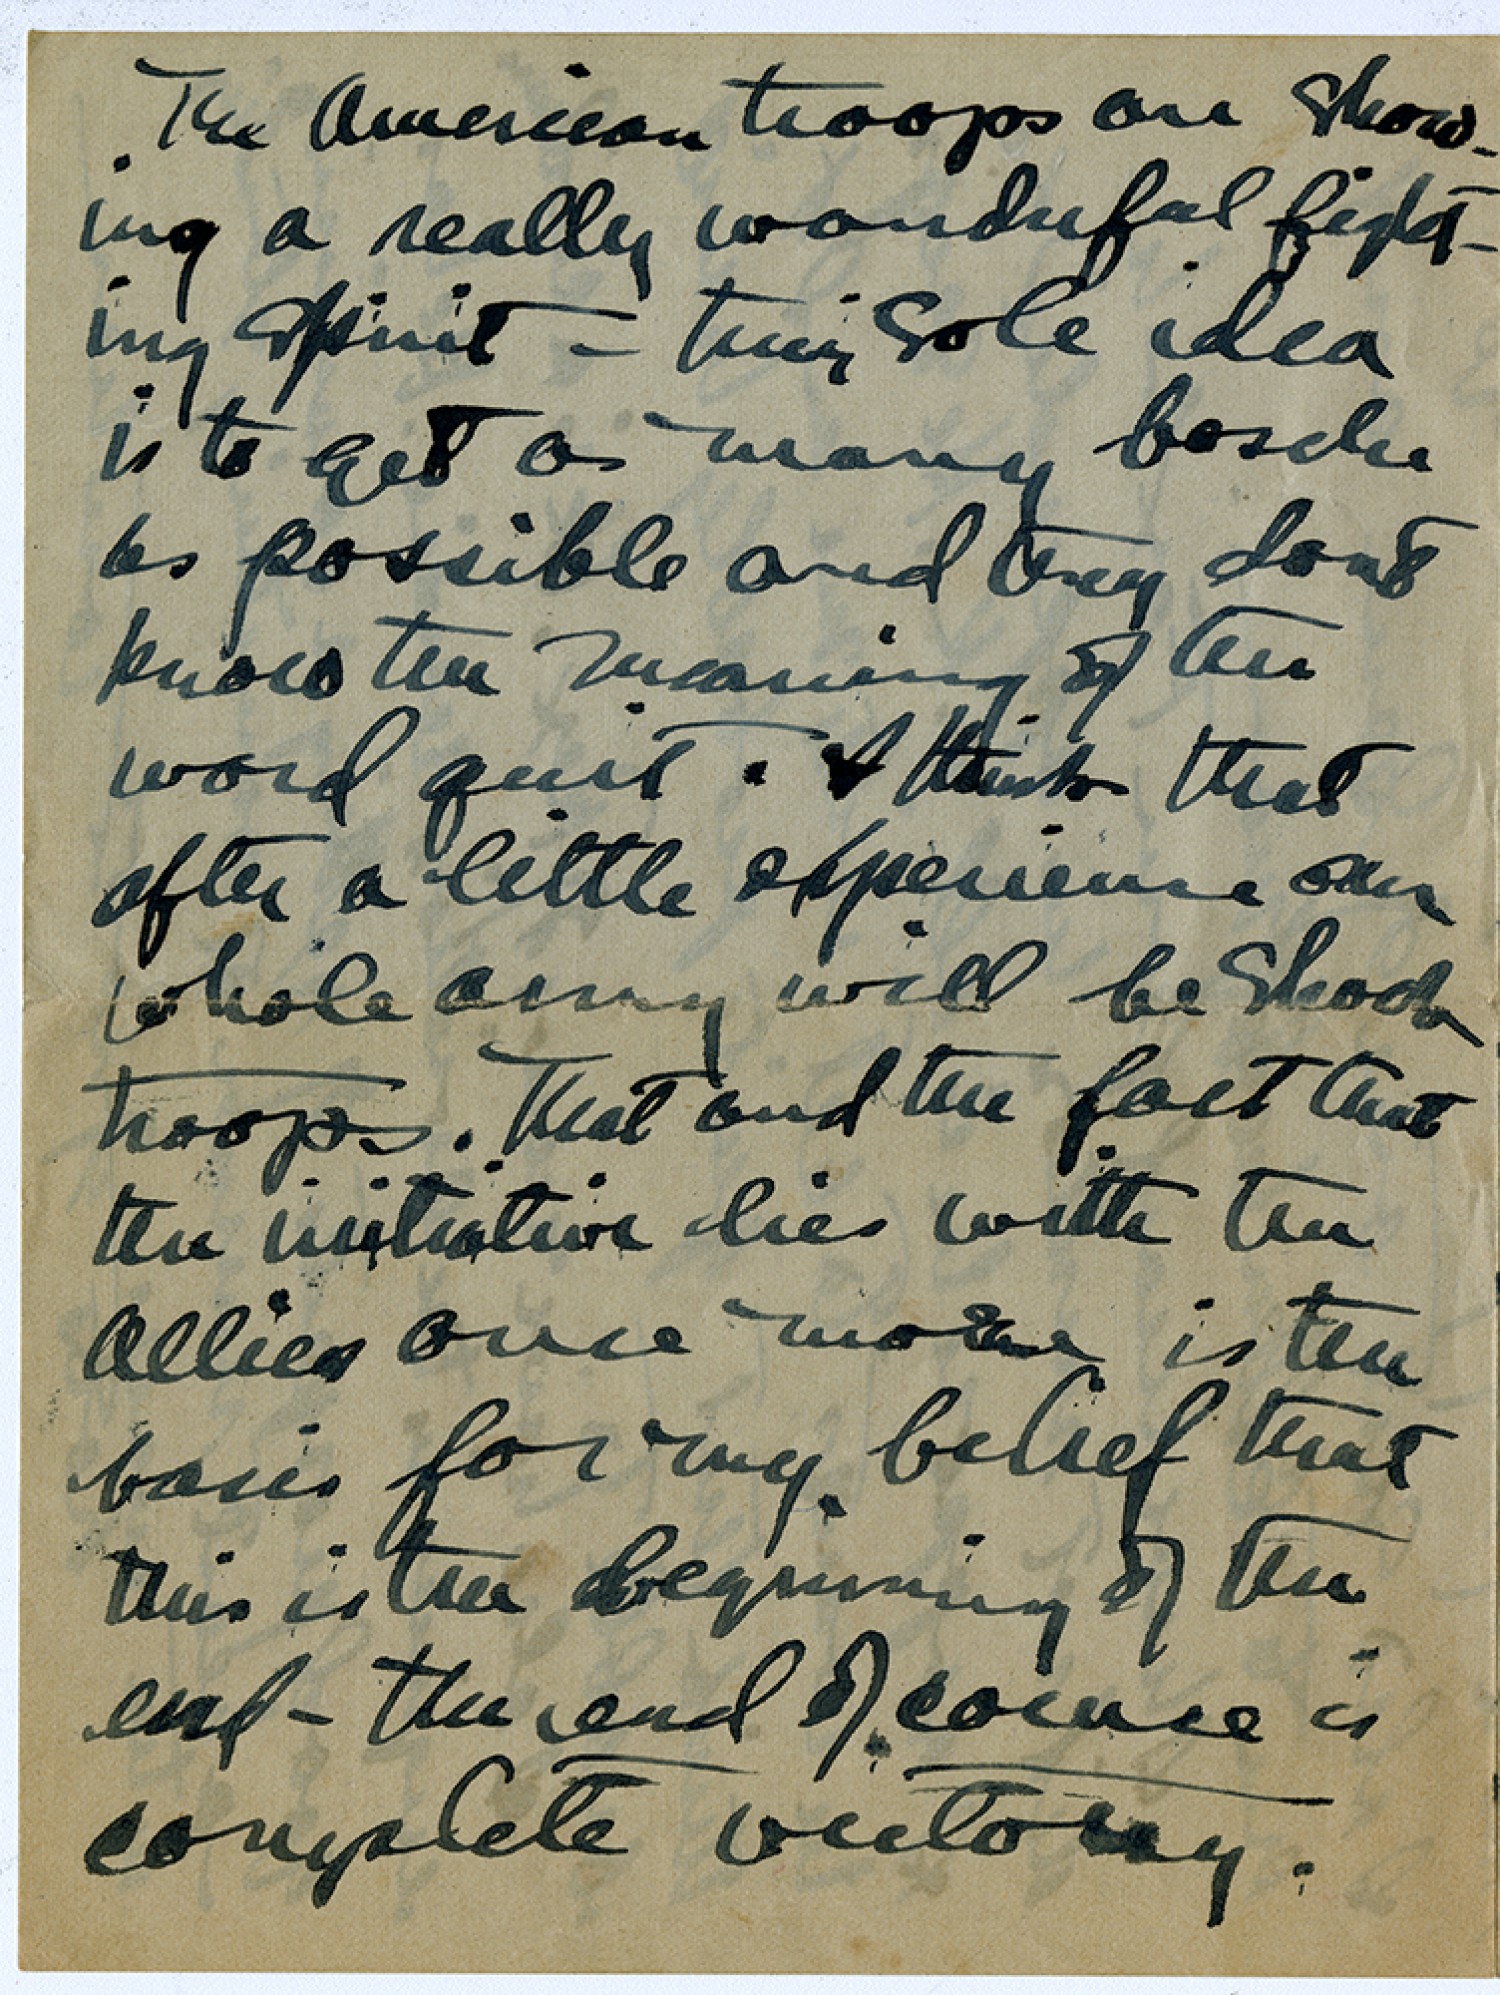 The American troops are show-
ing a really wonderful fight-
ing spirit – their sole idea
is to get as many bosche
as possible and they dont
know the meaning of the
word quit. I think that
after a little experience our
whole army will be shock
troops. That and the fact that
the initiative lies with the
Allies once more is the
basis for my belief that
this is the beginning of the
end – the end of course is
complete victory.